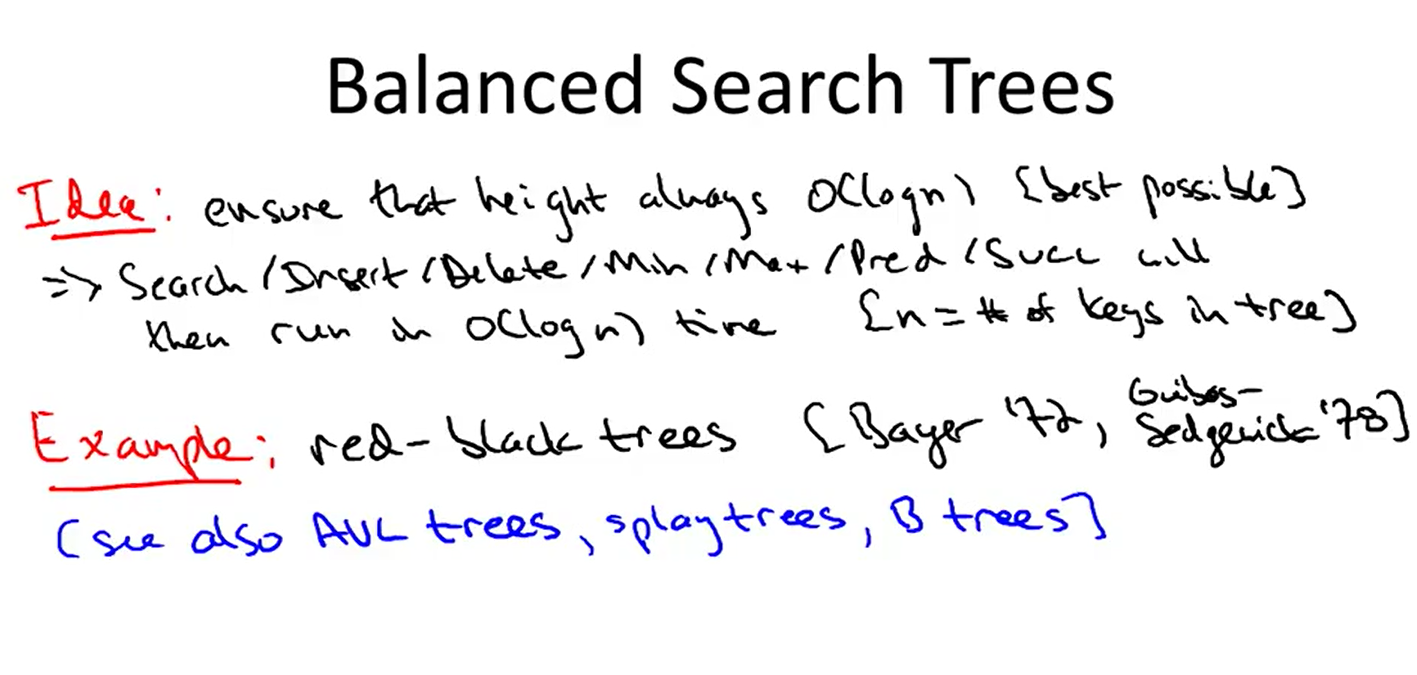 Balanced Search Trees
Idea: ensure that height always O(log n) [best possible]
=> Search/Insert/Delete/Min/Max/Pred/Succ will
then run in O(log n) time [n = # of keys in tree]
Example: red-black trees [Bayer '72, Guibas-
Sedgewick '78]
[see also AVL trees, splay trees, B trees]